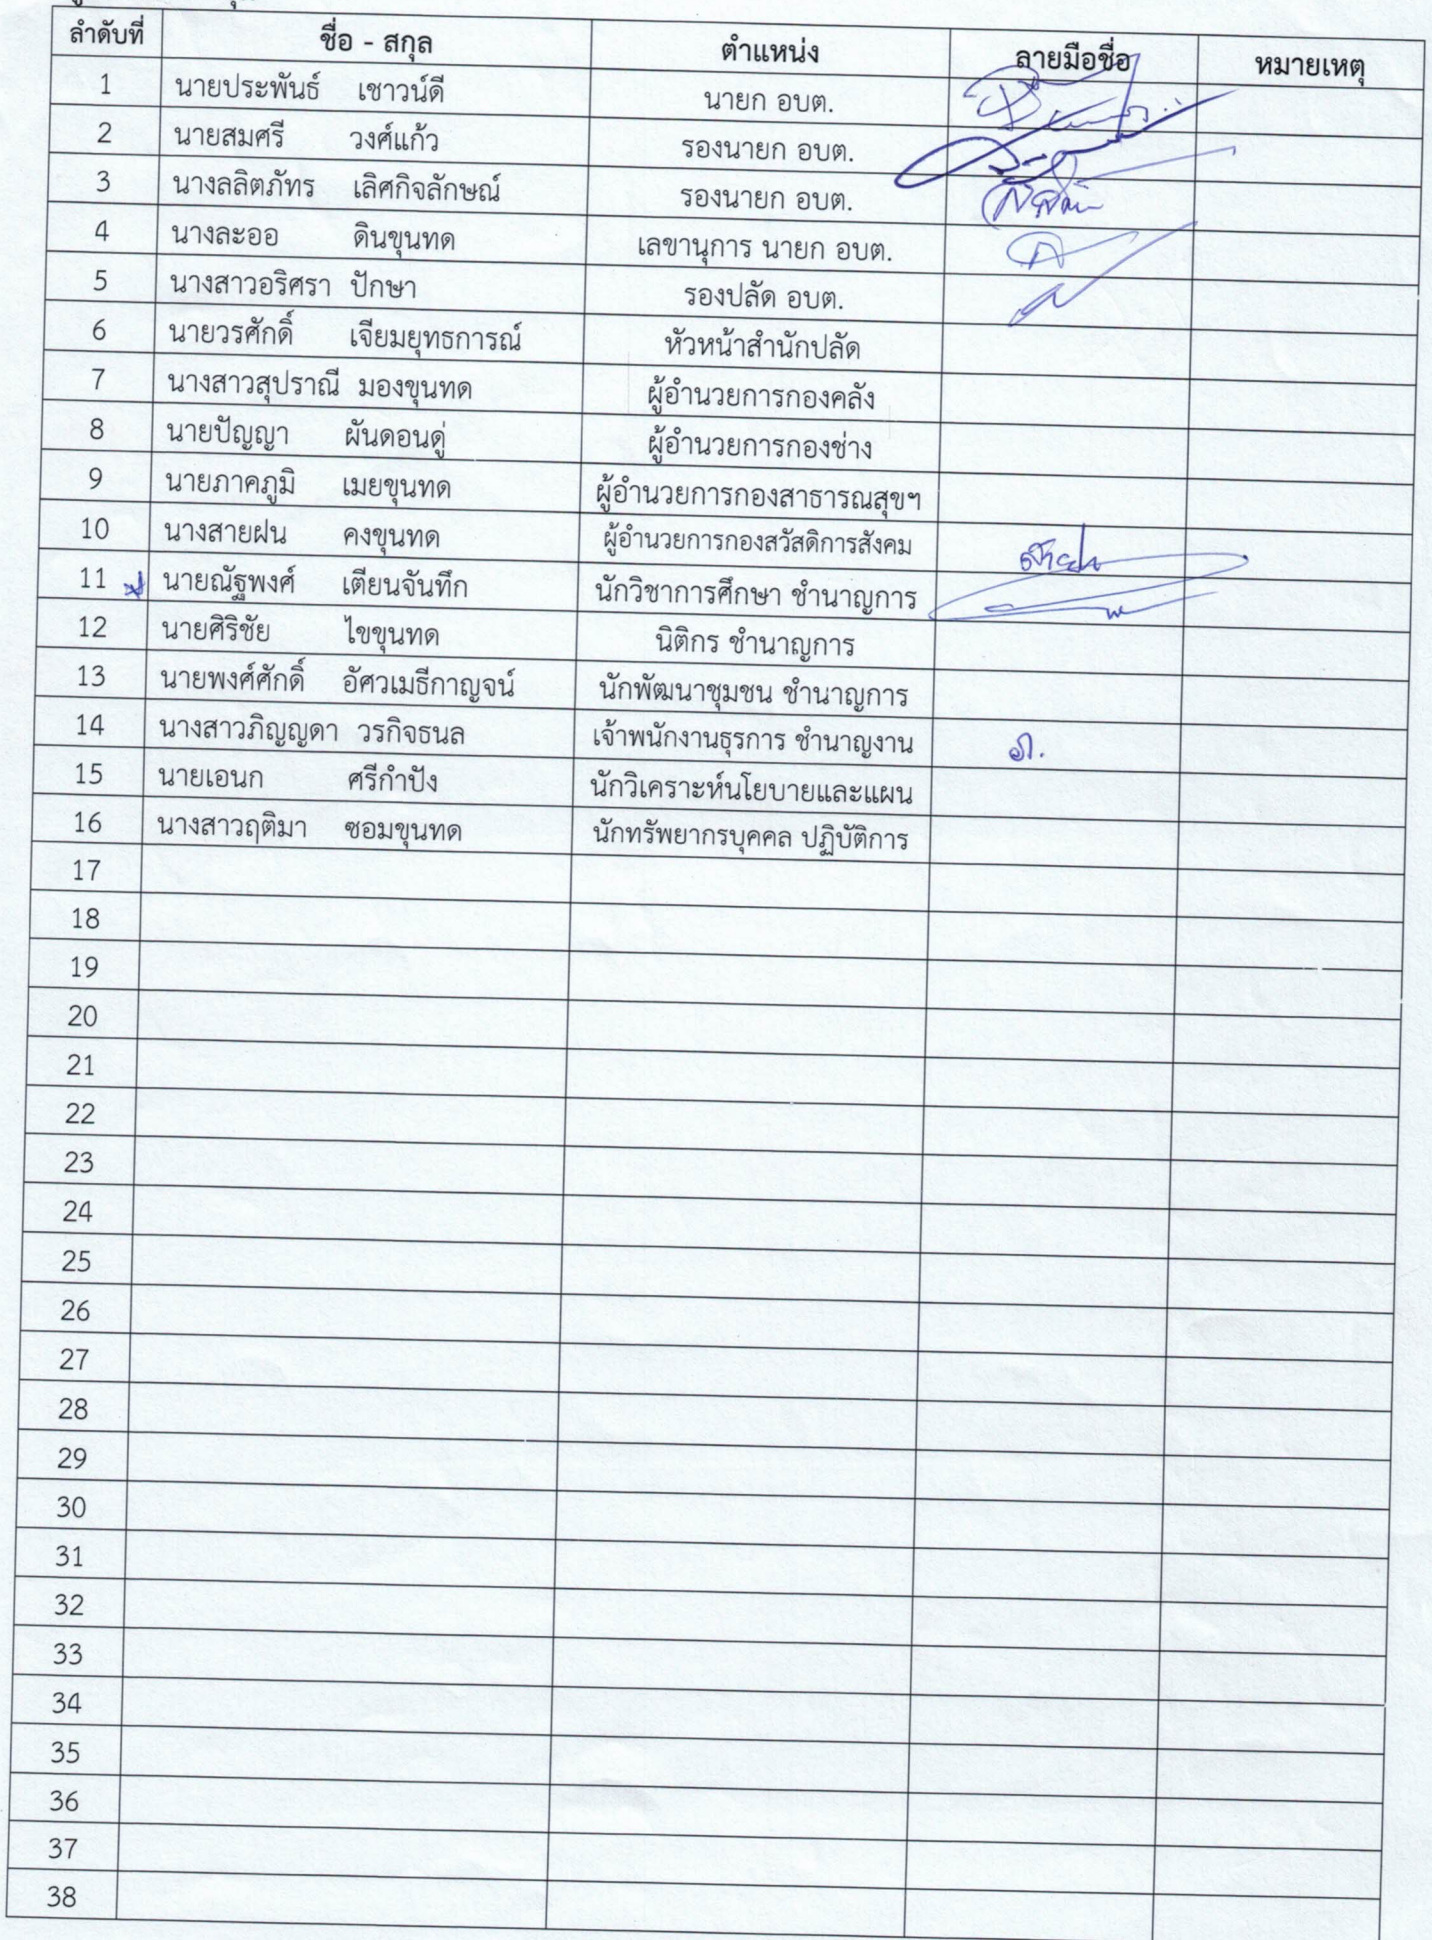 ลำดับที่ ชื่อ - สกุล ตำแหน่ง ลายมือชื่อ หมายเหตุ
1 นายประพันธ์ เชาวน์ดี นายก อบต.
2 นายสมศรี วงศ์แก้ว รองนายก อบต.
3 นางลลิตภัทร เลิศกิจลักษณ์ รองนายก อบต.
4 นางละออ ดินขุนทด เลขานุการ นายก อบต.
5 นางสาวอริศรา ปักษา รองปลัด อบต.
6 นายวรศักดิ์ เจียมยุทธการณ์ หัวหน้าสำนักปลัด
7 นางสาวสุปราณี มองขุนทด ผู้อำนวยการกองคลัง
8 นายปัญญา ผันดอนดู่ ผู้อำนวยการกองช่าง
9 นายภาคภูมิ เมยขุนทด ผู้อำนวยการกองสาธารณสุขฯ
10 นางสายฝน คงขุนทด ผู้อำนวยการกองสวัสดิการสังคม
11 นายณัฐพงศ์ เตียนจันทึก นักวิชาการศึกษา ชำนาญการ
12 นายศิริชัย ไขขุนทด นิติกร ชำนาญการ
13 นายพงศ์ศักดิ์ อัศวเมธีกาญจน์ นักพัฒนาชุมชน ชำนาญการ
14 นางสาวภิญญดา วรกิจธนล เจ้าพนักงานธุรการ ชำนาญงาน
15 นายเอนก ศรีกำปัง นักวิเคราะห์นโยบายและแผน
16 นางสาวฤติมา ซอมขุนทด นักทรัพยากรบุคคล ปฏิบัติการ
17
18
19
20
21
22
23
24
25
26
27
28
29
30
31
32
33
34
35
36
37
38